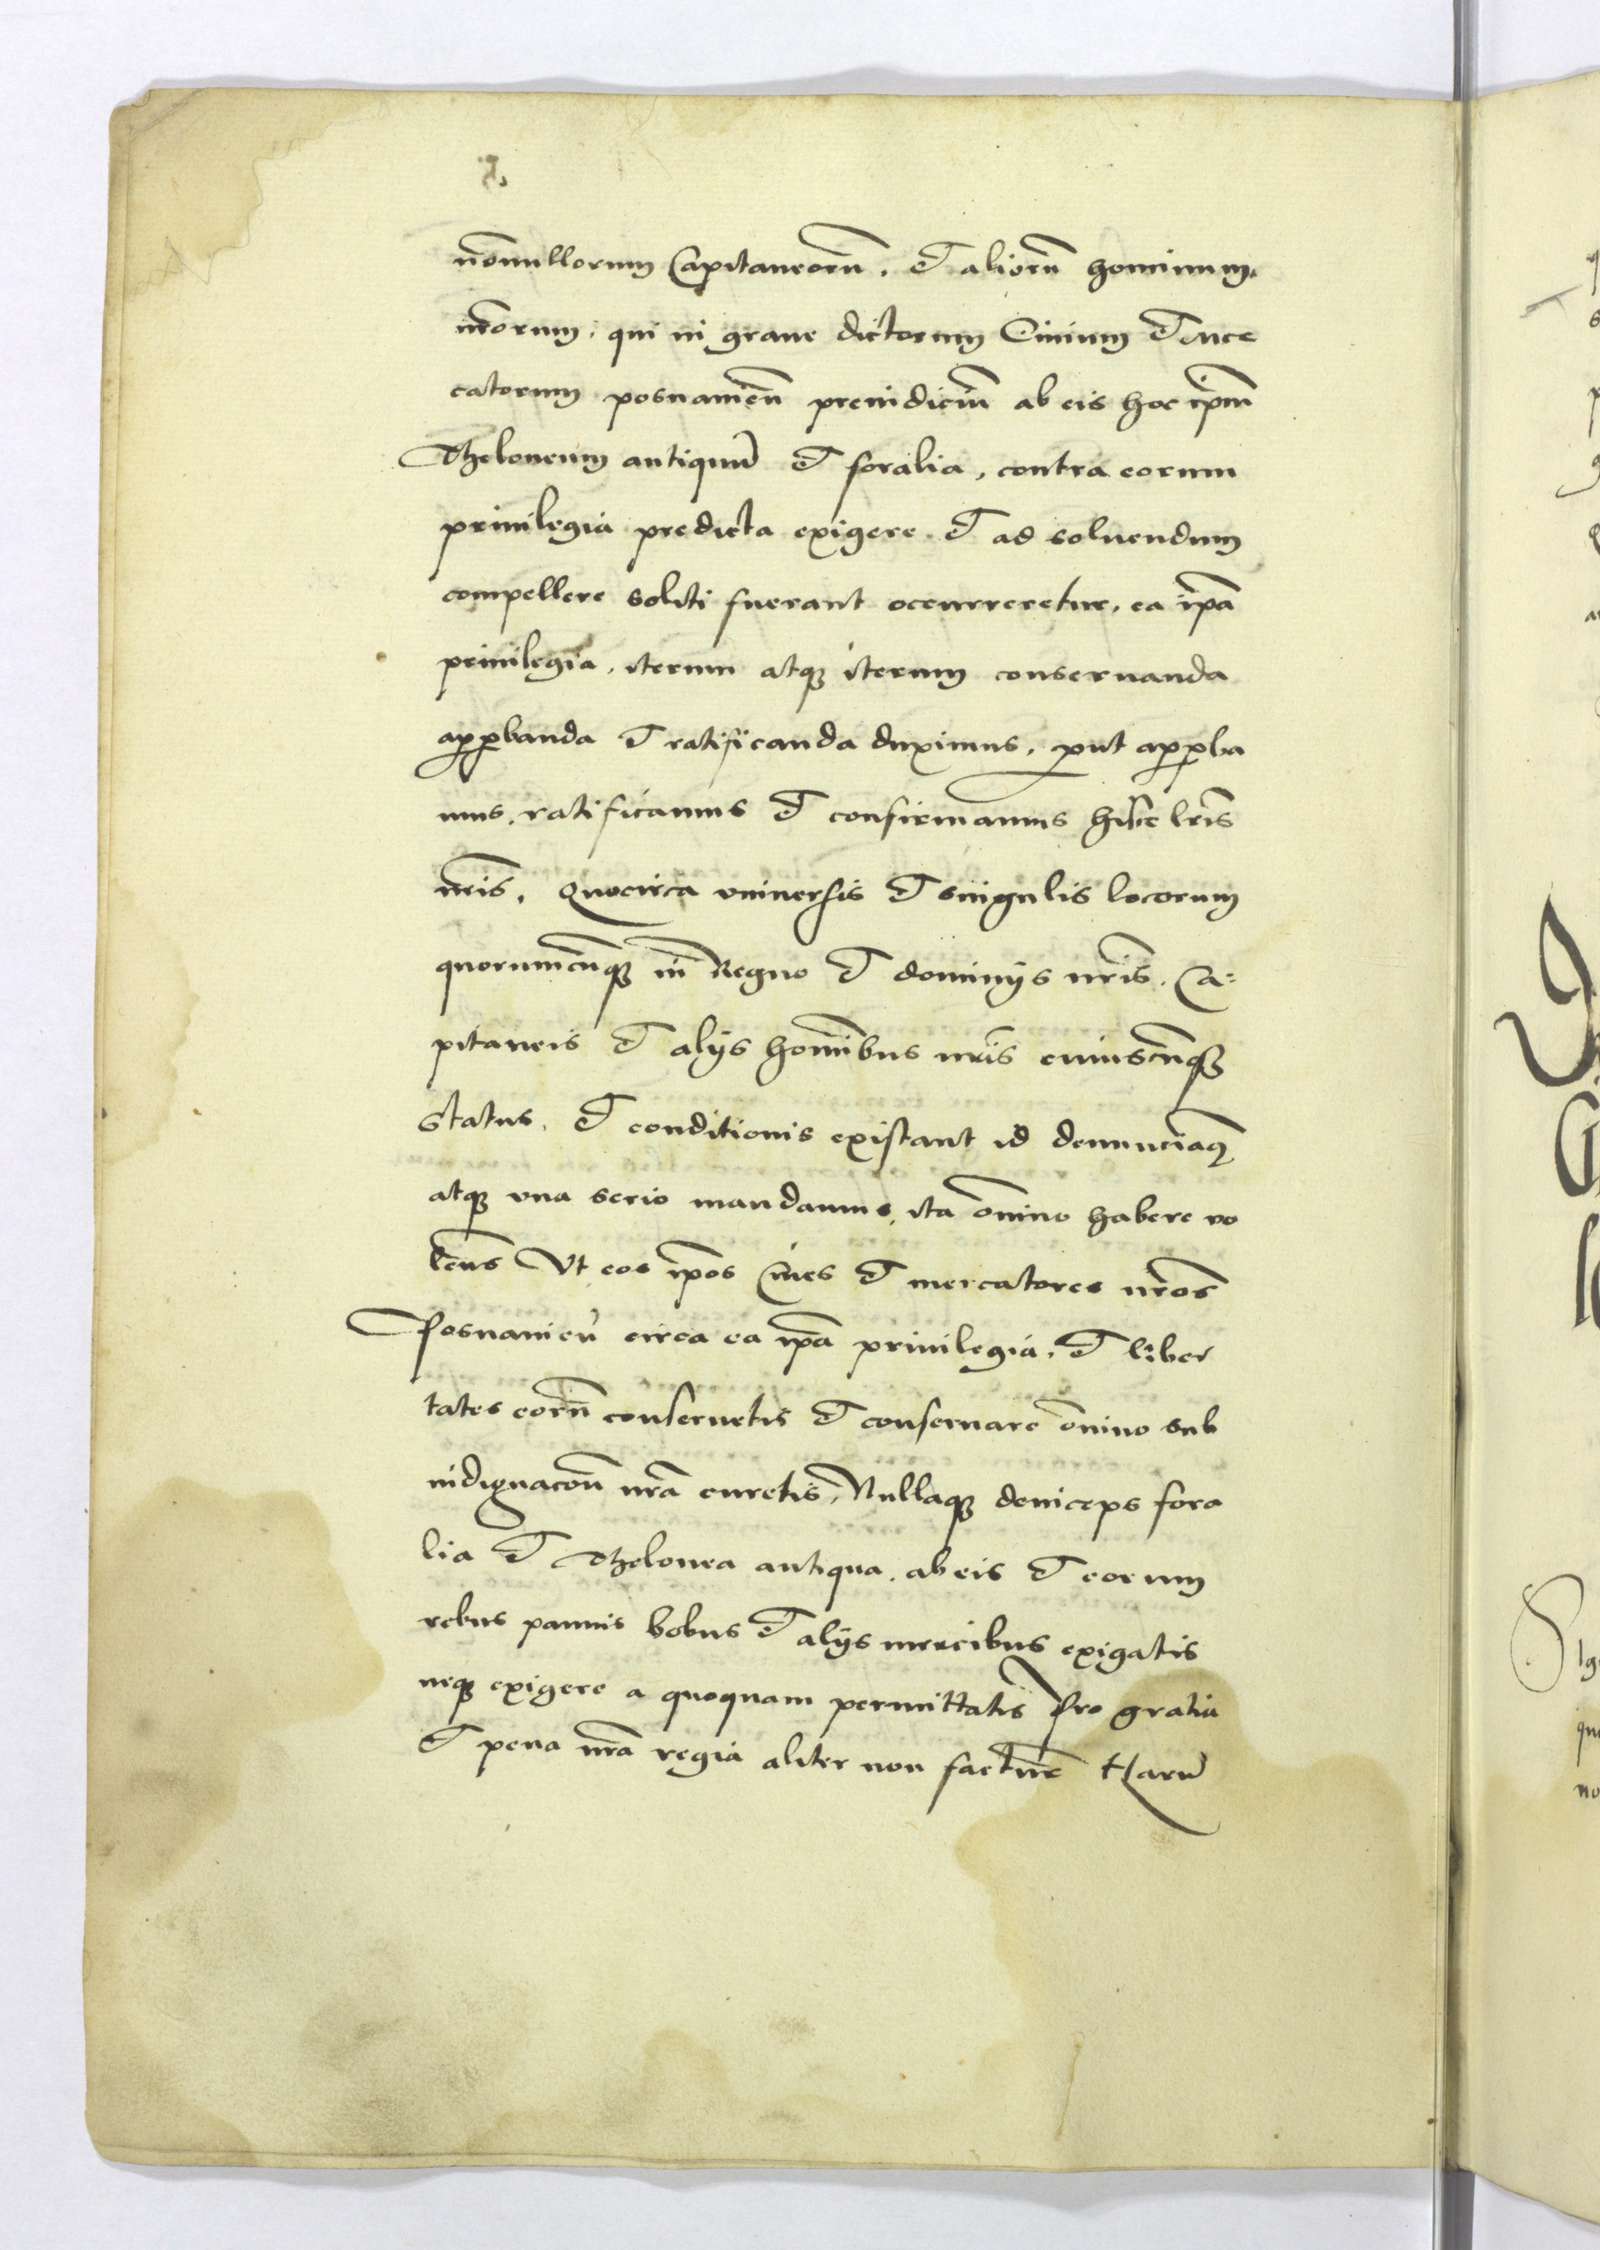 nonullorum Capitaneoru. et aliorū hominum.
nrorum. qui in graue dictorum Ciuium et mer
catorum posnanien preiudiciū ab eis hoc ipm
Theloneum antiquū et foralia, contra eorum
priuilegia predicta exigere et ad soluendum
compellere soliti fuerant occurreretur, ea ipa
priuilegia, iterum atqz iterum conseruanda
approbanda et ratificanda duximus, prout approba
mus, ratificamus et confirmamus hisce lris
nris. Quocirca vniuersis et singulis locorum
quorumcūqz in Regno et dominijs nris. Ca=
pitaneis et alijs hominibus nris cuiuscūqz
status. et conditionis existant id denunciaē
atqz vna serio mandamus, ita omnino habere vo
lens Vt eos ipos Ciues et mercatores nros
Posnanien circa ea ipa priuilegia, et liber
tates eorū conseruetis et conseruare omnino sub
indignacon nra curetis, Nullaqz deinceps fora
lia et Thelonea antiqua. ab eis et eorum
rebus pannis bobus et alijs mercibus exigatis
neqz exigere a quoquam permittatis Pro gratia
et pena nra regia aliter non factur Harū